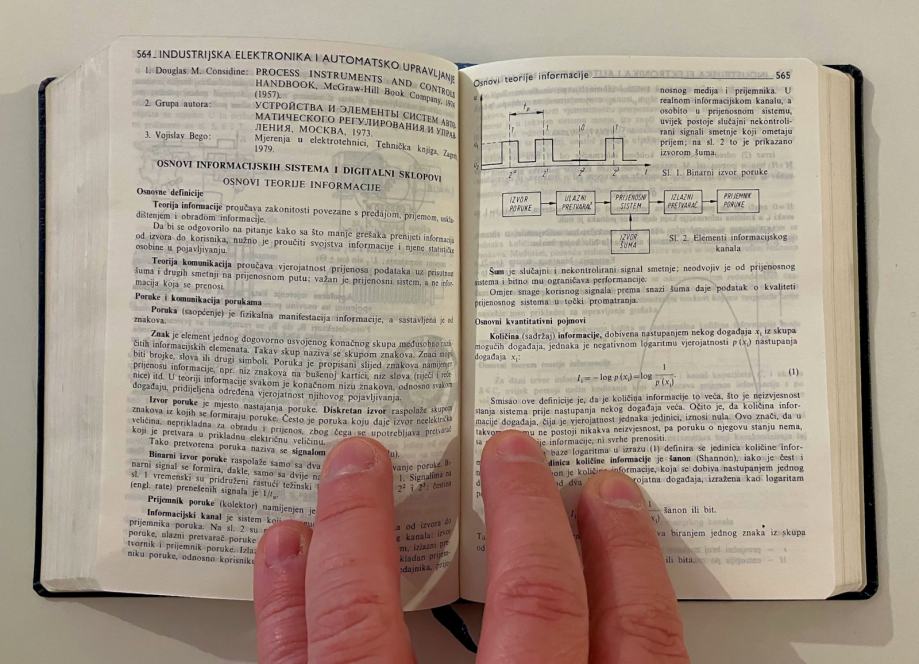 564 INDUSTRIJSKA ELEKTRONIKA I AUTOMATSKO UPRAVLJANJE
1. Douglas M. Considine: PROCESS INSTRUMENTS AND CONTROLS
HANDBOOK, McGraw-Hill Book Company,
(1957).
2. Grupa autora: УСТРОЙСТВА И ЭЛЕМЕНТЫ СИСТЕМ АВТО-
МАТИЧЕСКОГО РЕГУЛИРОВАНИЯ И УПРАВ-
ЛЕНИЯ, МОСКВА, 1973.
3. Vojislav Bego: Mjerenja u elektrotehnici, Tehnička knjiga,
1979.
OSNOVI INFORMACIJSKIH SISTEMA I DIGITALNI SKLOPOVI
OSNOVI TEORIJE INFORMACIJE
Osnovne definicije
Teorija informacije proučava zakonitosti povezane s predajom, prijemom, uskla-
dištenjem i obradom informacije.
Da bi se odgovorilo na pitanje kako sa što manje grešaka prenijeti informaciju
od izvora do korisnika, nužno je proučiti svojstva informacije i njene statističke
osobine u pojavljivanju.
Teorija komunikacija proučava vjerojatnost prijenosa podataka uz prisutnost
šuma i drugih smetnji na prijenosnom putu; važan je prijenosni sistem, a ne infor-
macija koja se prenosi.
Poruke i komunikacija porukama
Poruka (saopćenje) je fizikalna manifestacija informacije, a sastavljena je od
znakova.
Znak je element jednog dogovorno usvojenog konačnog skupa međusobno razli-
čitih informacijskih elemenata. Takav skup naziva se skupom znakova. Znaci mogu
biti brojke, slova ili drugi simboli. Poruka je propisani slijed znakova namijenjen
prijenosu informacije, npr. niz znakova na bušenoj kartici, niz slova (riječi i reče-
nice) itd. U teoriji informacije svakom je konačnom nizu znakova, odnosno svakom
događaju, pridijeljena određena vjerojatnost njihovog pojavljivanja.
Izvor poruke je mjesto nastajanja poruke. Diskretan izvor raspolaže skupom
znakova iz kojih se formiraju poruke. Često je poruka koju daje izvor neelektrička
veličina, neprikladna za obradu i prijenos, zbog čega se upotrebljava pretvarač
koji je pretvara u prikladnu električnu veličinu,
Tako pretvorena poruka naziva se signalom
Binarni izvor poruke raspolaže samo sa dva vanje poruke. Bi-
narni signal se formira, dakle, samo sa dvije 1. Signalima na
sl. 1 vremenski su pridruženi rastući težinski 2² i 2³; čestina
(engl. rate) prenešenih signala je 1/
Prijemnik poruke (kolektor) namijenjen je
Informacijski kanal je sistem koji od izvora do
prijemnika poruka. Na sl. 2 su kanala: izvor
poruke, ulazni pretvarač poruke izlazni pre-
tvornik i prijemnik poruke. prijem-
niku poruke, odnosno korisniku
Osnovi teorije informacije 565
nosnog medija i prijemnika. U
realnom informacijskom kanalu, a
osobito u prijenosnom sistemu,
uvijek postoje slučajni nekontroli-
rani signali smetnje koji ometaju
prijem; na sl. 2 to je prikazano
izvorom šuma.
1 1 0 1
2³ 2² 2¹ 2⁰ t
Sl. 1. Binarni izvor poruke
IZVOR PORUKE ULAZNI PRETVARAČ PRIJENOSNI SISTEM IZLAZNI PRETVARAČ PRIJEMNIK PORUKE
IZVOR ŠUMA
Sl. 2. Elementi informacijskog
kanala
Šum je slučajni i nekontrolirani signal smetnje; neodvojiv je od prijenosnog
sistema i bitno mu ograničava performancije.
Omjer snage korisnog signala prema snazi šuma daje podatak o kvaliteti
prijenosnog sistema u točki promatranja.
Osnovni kvantitativni pojmovi
Količina (sadržaj) informacije, dobivena nastupanjem nekog događaja xᵢ iz skupa
mogućih događaja, jednaka je negativnom logaritmu vjerojatnosti p(xᵢ) nastupanja
događaja xᵢ:
Iᵢ = − log p(xᵢ) = log 1/p(xᵢ) (1)
Smisao ove definicije je, da je količina informacije to veća, što je neizvjesnost
stanja sistema prije nastupanja nekog događaja veća. Očito je, da količina infor-
macije događaja, čija je vjerojatnost jednaka jedinici, iznosi nula. Ovo znači, da u
takvom ne postoji nikakva neizvjesnost, pa poruku o njegovu stanju nema,
informacije, ni svrhe prenositi.
baze logaritma u izrazu (1) definira se jedinica količine infor-
jedinica količine informacije je šanon (Shannon), iako je čest i
je količine informacije, koja se dobiva nastupanjem jednog
od dva vjerojatna događaja, izražena kao logaritam
šanon ili bit.
va biranjem jednog znaka iz skupa
od ili bita.